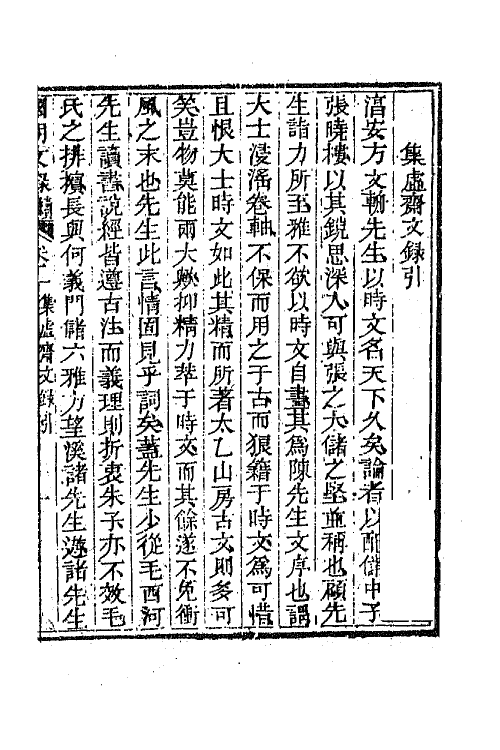 集虛齋文錄引
淳安方文輈先生以時文名天下久矣論者以配儲中子
張曉樓以其銳思深入可與張之大儲之堅並稱也顧先
生詣力所至雅不欲以時文自畫其為陳先生文序也謂
大士浸滛卷軸不保而用之于古而狠籍于時文為可惜
且恨大士時文如此其精而所著太乙山房古文則多可
笑豈物莫能兩大歟抑精力萃于時文而其餘遂不免衝
風之末也先生此言情固見乎詞矣蓋先生少從毛西河
先生讀書說經皆遵古法而義理則折衷朱子亦不效毛
氏之掊擊長與何義門儲六雅方望溪諸先生遊諸先生
國朝文錄續 卷一 集虛齋文錄引 一